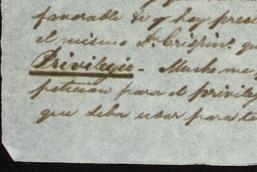 favorable
el mismo Dn. Crispin. qu
Privilegio. Mucho me
peticion para el privileg
que deba usar para